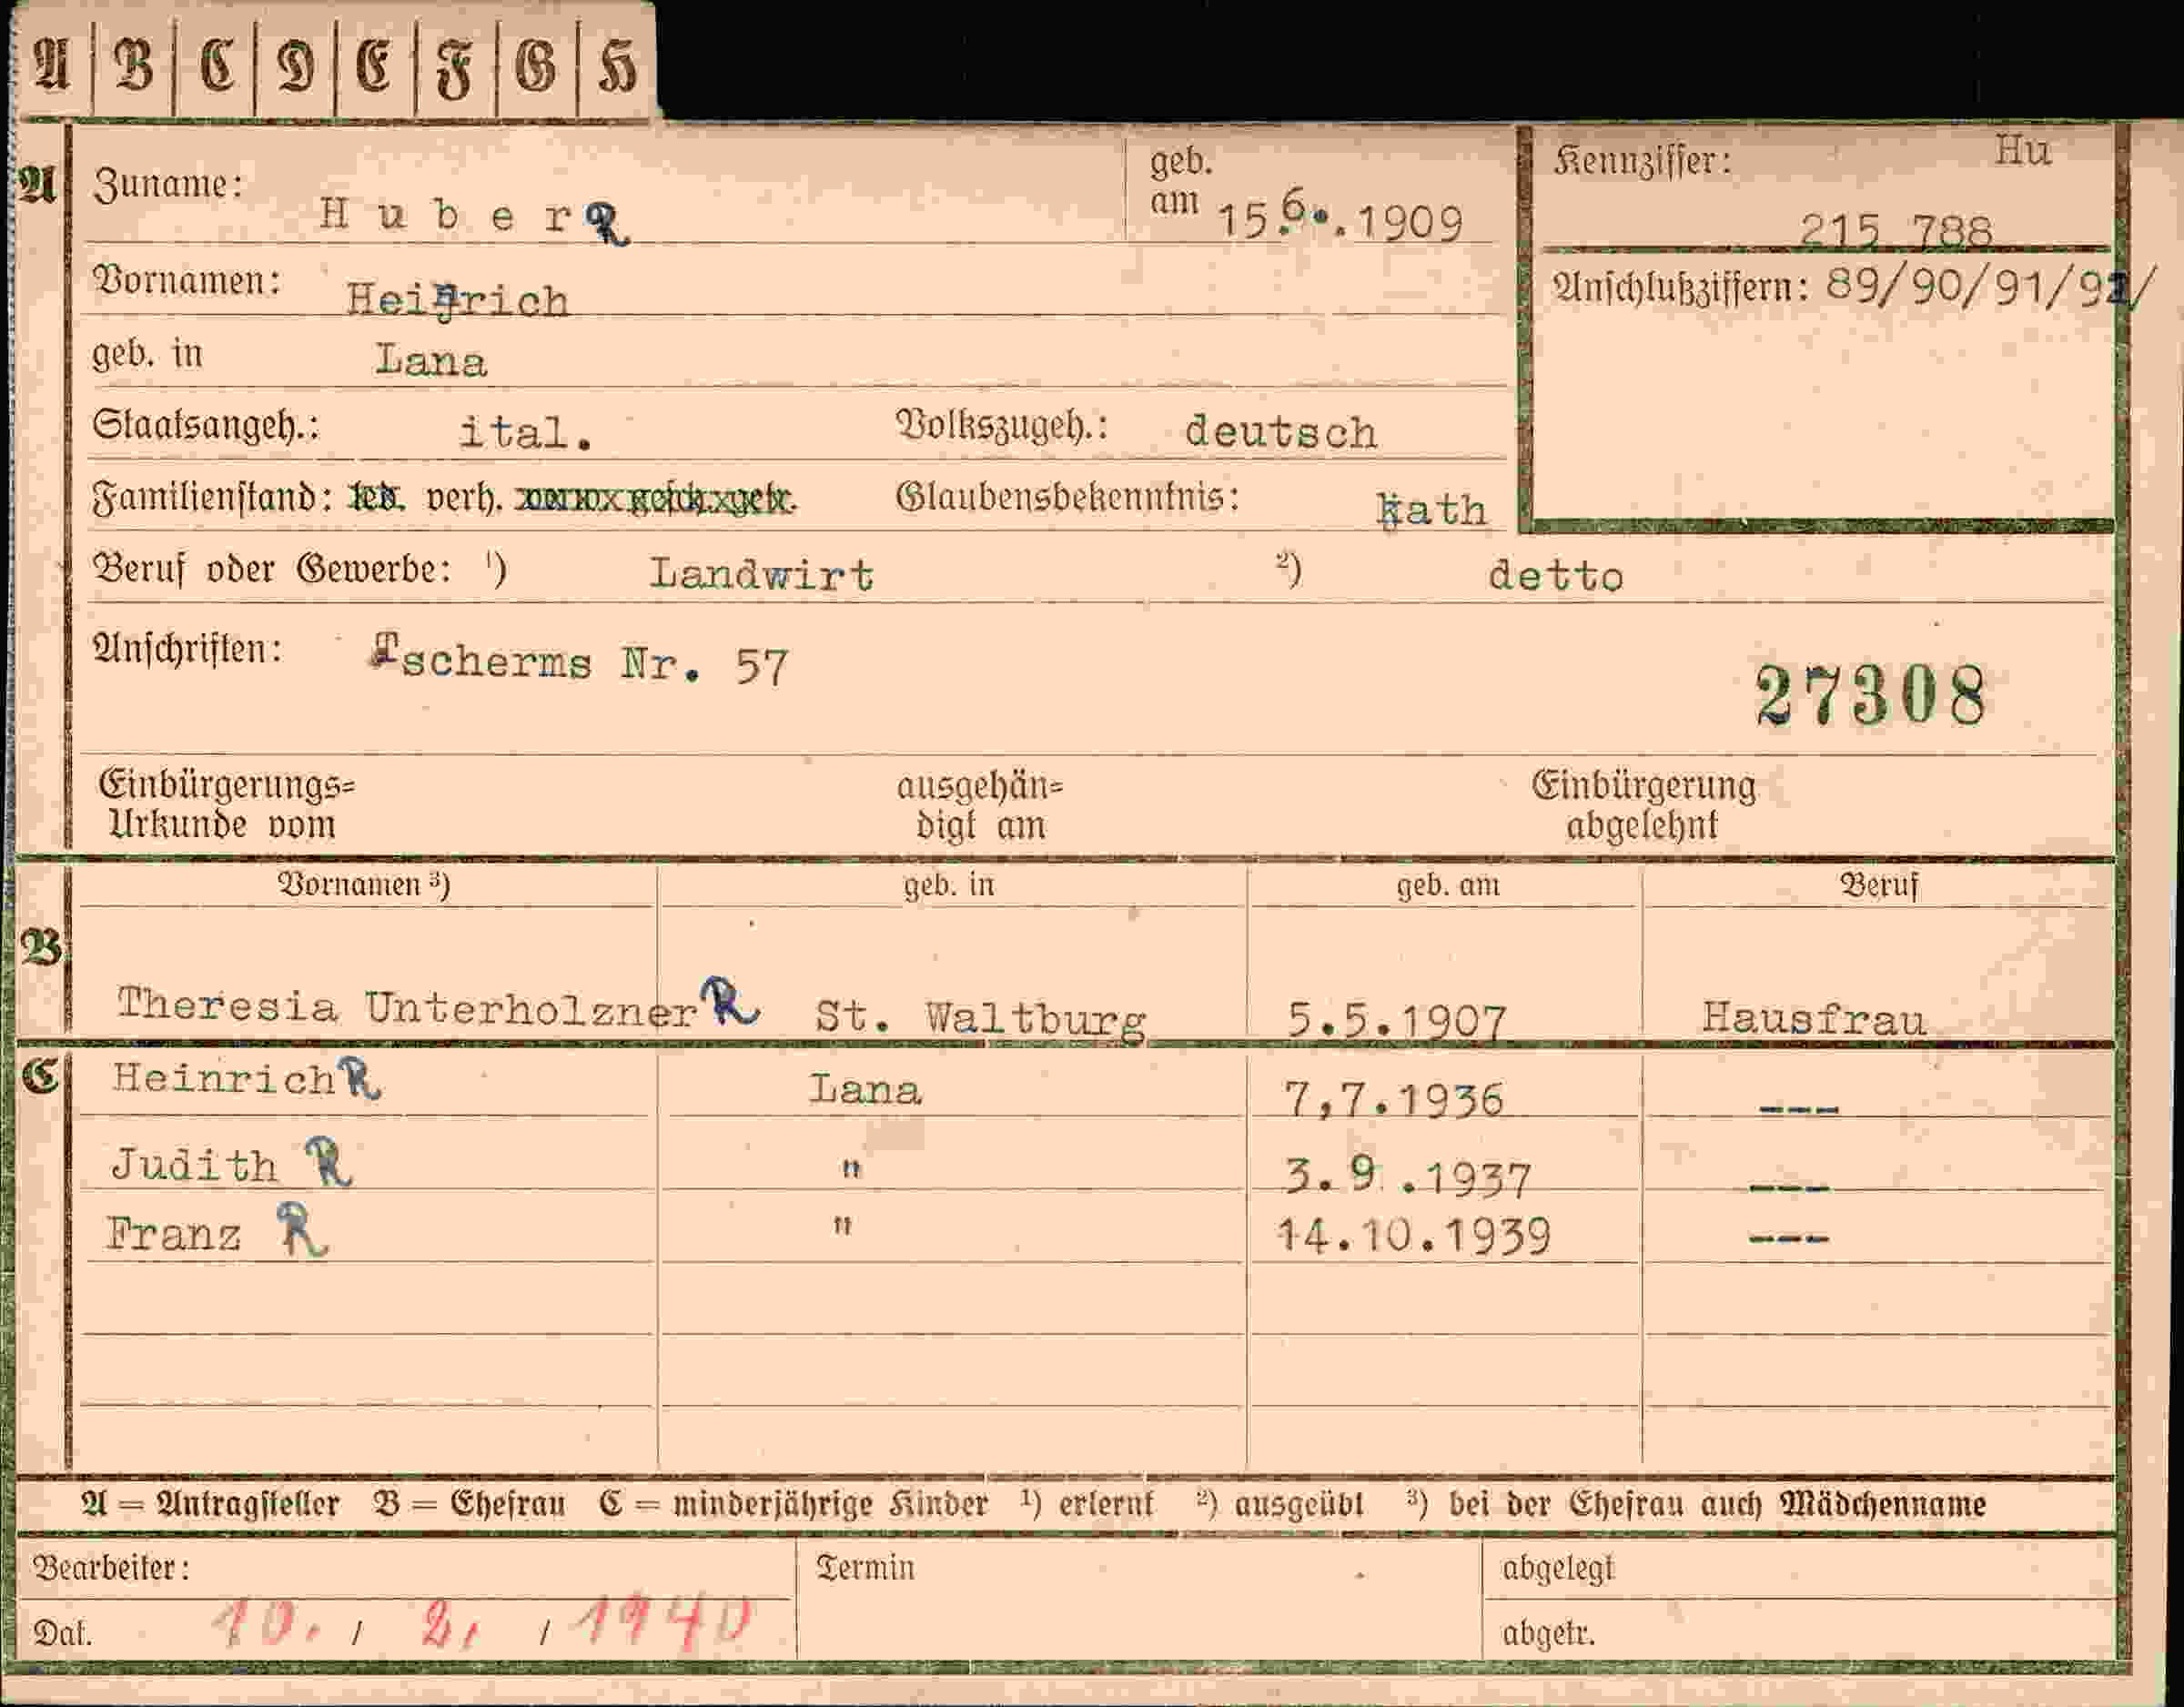 A B C D E F G H
A Zuname: Huber R geb. am 15.6..1909 Kennziffer: Hu 215 788
Vornamen: Heinrich Anschlußziffern: 89/90/91/92/
geb. in Lana
Staatsangeh.: ital. Volkszugeh.: deutsch
Familienstand: led. verh. verw. gesch. getr. Glaubensbekenntnis: kath
Beruf oder Gewerbe: ¹) Landwirt ²) detto
Anschriften: Tscherms Nr. 57 27308
Einbürgerungs= ausgehän= Einbürgerung
Urkunde vom digt am abgelehnt
Vornamen ³) geb. in geb. am Beruf
B
Theresia Unterholzner R St. Waltburg 5.5.1907 Hausfrau
C Heinrich R Lana 7,7.1936 ---
Judith R " 3.9 .1937 ---
Franz R " 14.10.1939 ---
A = Antragsteller B = Ehefrau C = minderjährige Kinder ¹) erlernt ²) ausgeübt ³) bei der Ehefrau auch Mädchenname
Bearbeiter: Termin abgelegt
Dat. 10. / 2. / 1940 abgetr.